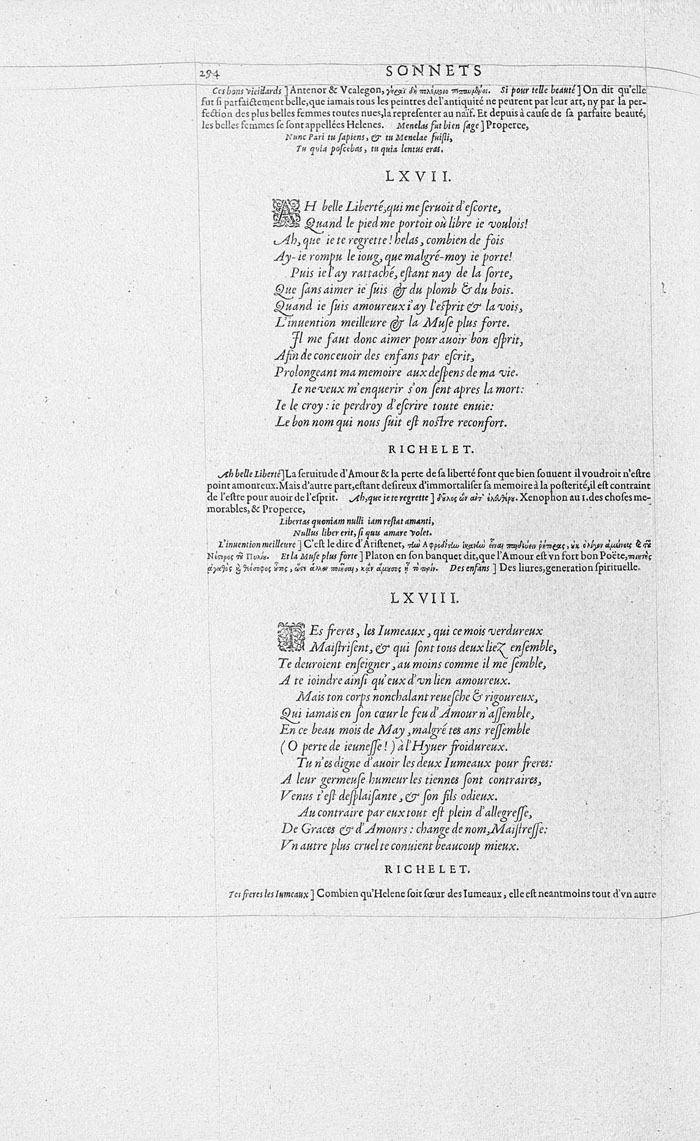 294 SONNETS
Ces bons vieillards ] Antenor & Vcalegon, Si pour telle beauté ] On dit qu'elle
fut si parfaictement belle, que iamais tous les peintres de l'antiquité ne peurent par leur art, ny par la per-
fection des plus belles femmes toutes nues, la representer au naïf. Et depuis à cause de sa parfaite beauté,
les belles femmes se sont appellées Helenes. Menelas fut bien sage ] Properce,
Nunc Pari tu sapiens, & tu Menelae fuisti,
Tu quia poscebas, tu quia lentus eras.
LXVII.
AH belle Liberté, qui me seruoit d'escorte,
Quand le pied me portoit où libre ie voulois!
Ah, que ie te regrette! helas, combien de fois
Ay-ie rompu le ioug, que malgré-moy ie porte!
Puis ie l'ay rattaché, estant nay de la sorte,
Que sans aimer ie suis & du plomb & du bois.
Quand ie suis amoureux i'ay l'esprit & la vois,
L'inuention meilleure & la Muse plus forte.
Il me faut donc aimer pour auoir bon esprit,
Afin de conceuoir des enfans par escrit,
Prolongeant ma memoire aux despens de ma vie.
Ie ne veux m'enquerir s'on sent apres la mort:
Ie le croy: ie perdroy d'escrire toute enuie:
Le bon nom qui nous suit est nostre reconfort.
RICHELET.
Ah belle Liberté] La seruitude d'Amour & la perte de sa liberté font que bien souuent il voudroit n'estre
point amoureux. Mais d'autre part, estant desireux d'immortaliser sa memoire à la posterité, il est contraint
de l'estre pour auoir de l'esprit. Ah, que ie te regrette ] Xenophon au 1. des choses me-
morables, & Properce,
Libertas quoniam nulli iam restat amanti,
Nullus liber erit, si quis amare volet.
L'inuention meilleure ] C'est le dire d'Aristenet,
Et la Muse plus forte ] Platon en son banquet dit, que l'Amour est vn fort bon Poëte,
Des enfans ] Des liures, generation spirituelle.
LXVIII.
TEs freres, les Iumeaux, qui ce mois verdureux
Maistrisent, & qui sont tous deux liez ensemble,
Te deuroient enseigner, au moins comme il me semble,
A te ioindre ainsi qu'eux d'vn lien amoureux.
Mais ton corps nonchalant reuesche & rigoureux,
Qui iamais en son cœur le feu d'Amour n'assemble,
En ce beau mois de May, malgré tes ans ressemble
(O perte de ieunesse!) à l'Hyuer froidureux.
Tu n'es digne d'auoir les deux Iumeaux pour freres:
A leur germeuse humeur les tiennes sont contraires,
Venus t'est desplaisante, & son fils odieux.
Au contraire par eux tout est plein d'allegresse,
De Graces & d'Amours: change de nom, Maistresse:
Vn autre plus cruel te conuient beaucoup mieux.
RICHELET.
Tes freres les Iumeaux ] Combien qu'Helene soit sœur des Iumeaux, elle est neantmoins tout d'vn autre